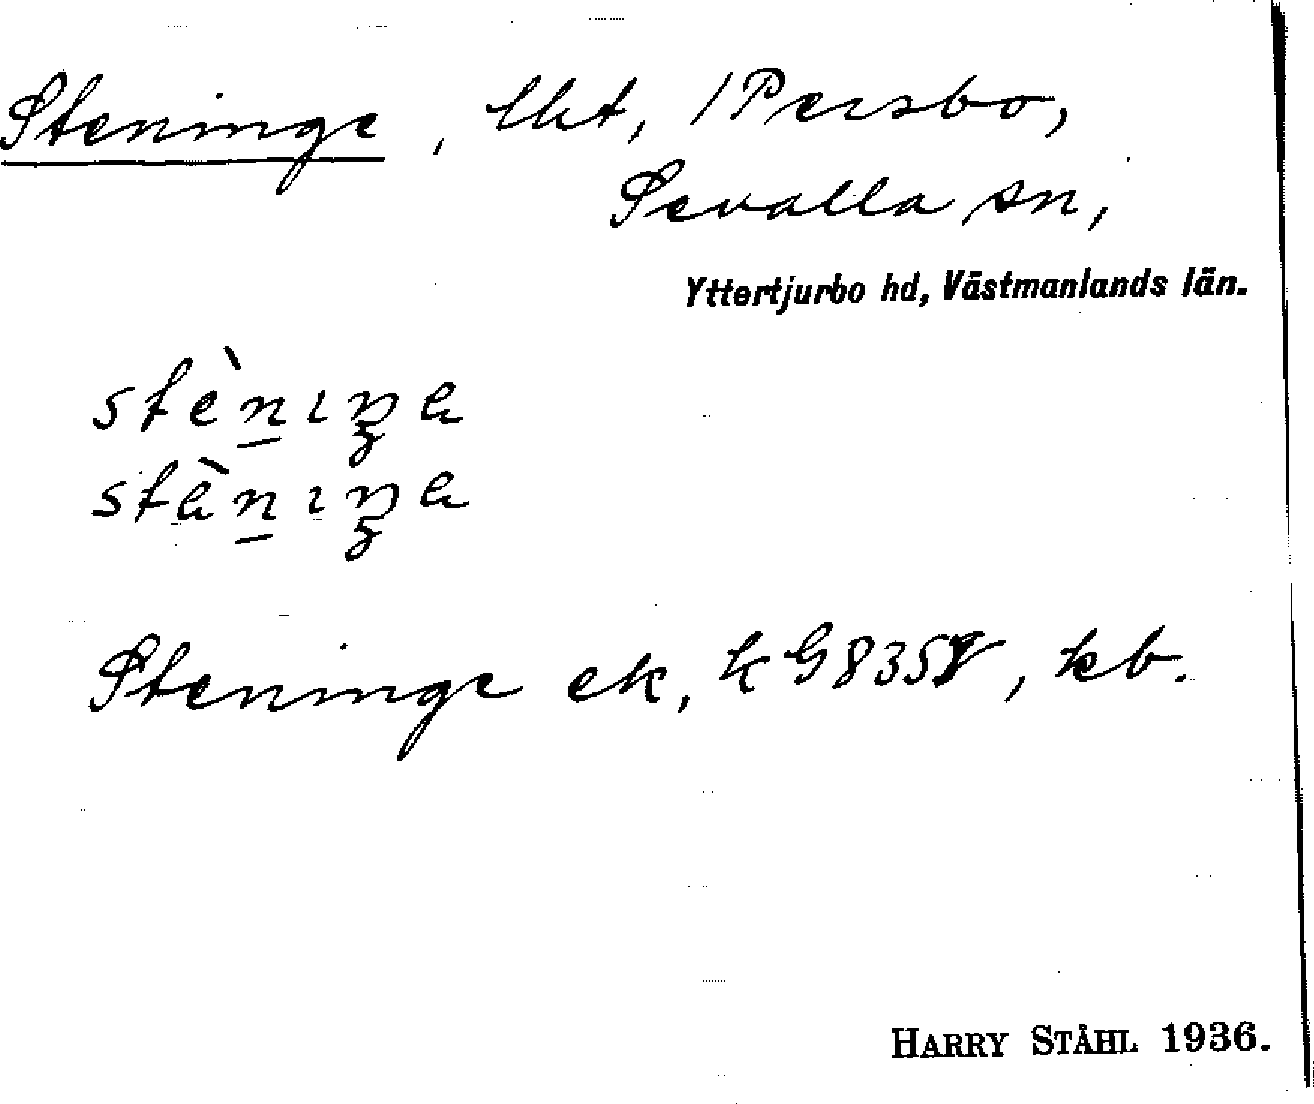 Steninge, lht, / Persbo,
Sevalla sn,
Yttertjurbo hd, Västmanlands län.
stèniŋa
stàniŋa
Steninge ek, k G 835, kb.
HARRY STÅHL 1936.